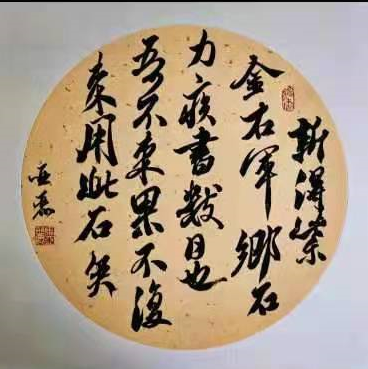 新得紫
金右軍鄉石
力疾書數日也
吾不来果不復
来用此石矣